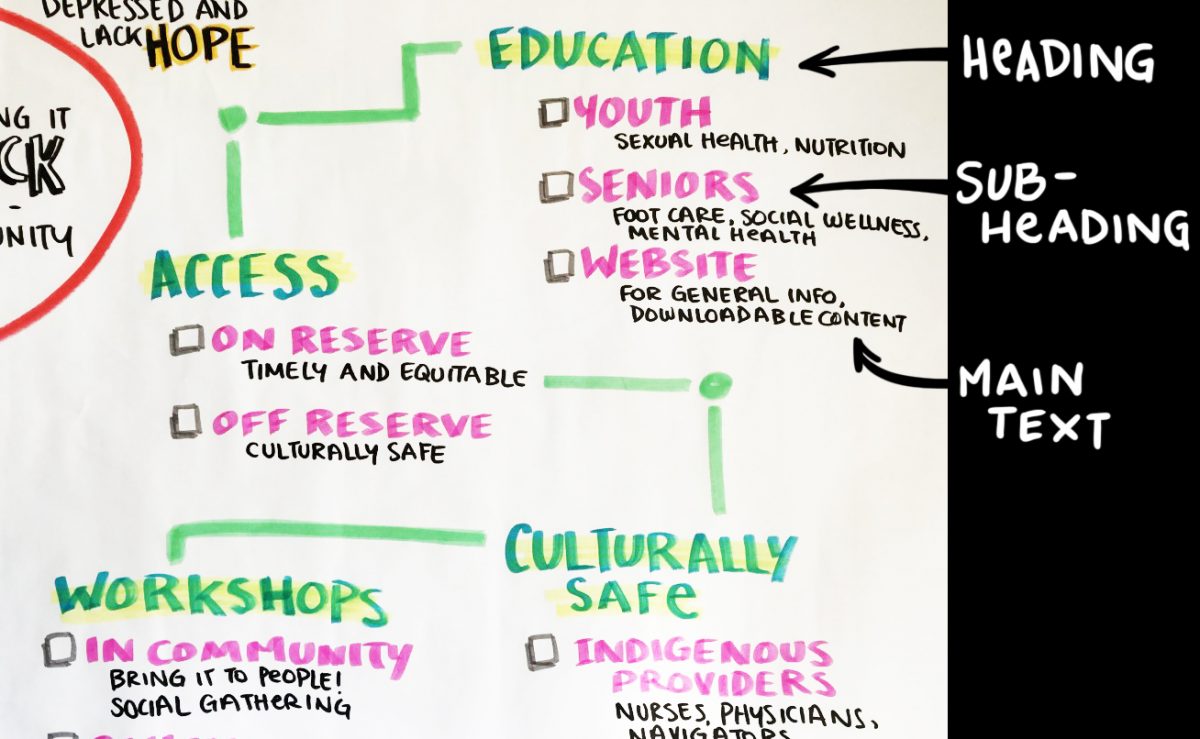 DEPRESSED AND
LACK HOPE
NG IT
CK
-
UNITY
EDUCATION
YOUTH
SEXUAL HEALTH, NUTRITION
SENIORS
FOOT CARE, SOCIAL WELLNESS,
MENTAL HEALTH
WEBSITE
FOR GENERAL INFO,
DOWNLOADABLE CONTENT
ACCESS
ON RESERVE
TIMELY AND EQUITABLE
OFF RESERVE
CULTURALLY SAFE
WORKSHOPS
IN COMMUNITY
BRING IT TO PEOPLE!
SOCIAL GATHERING
CULTURALLY
SAFE
INDIGENOUS
PROVIDERS
NURSES, PHYSICIANS,
NAVIGATORS
HEADING
SUB-
HEADING
MAIN
TEXT